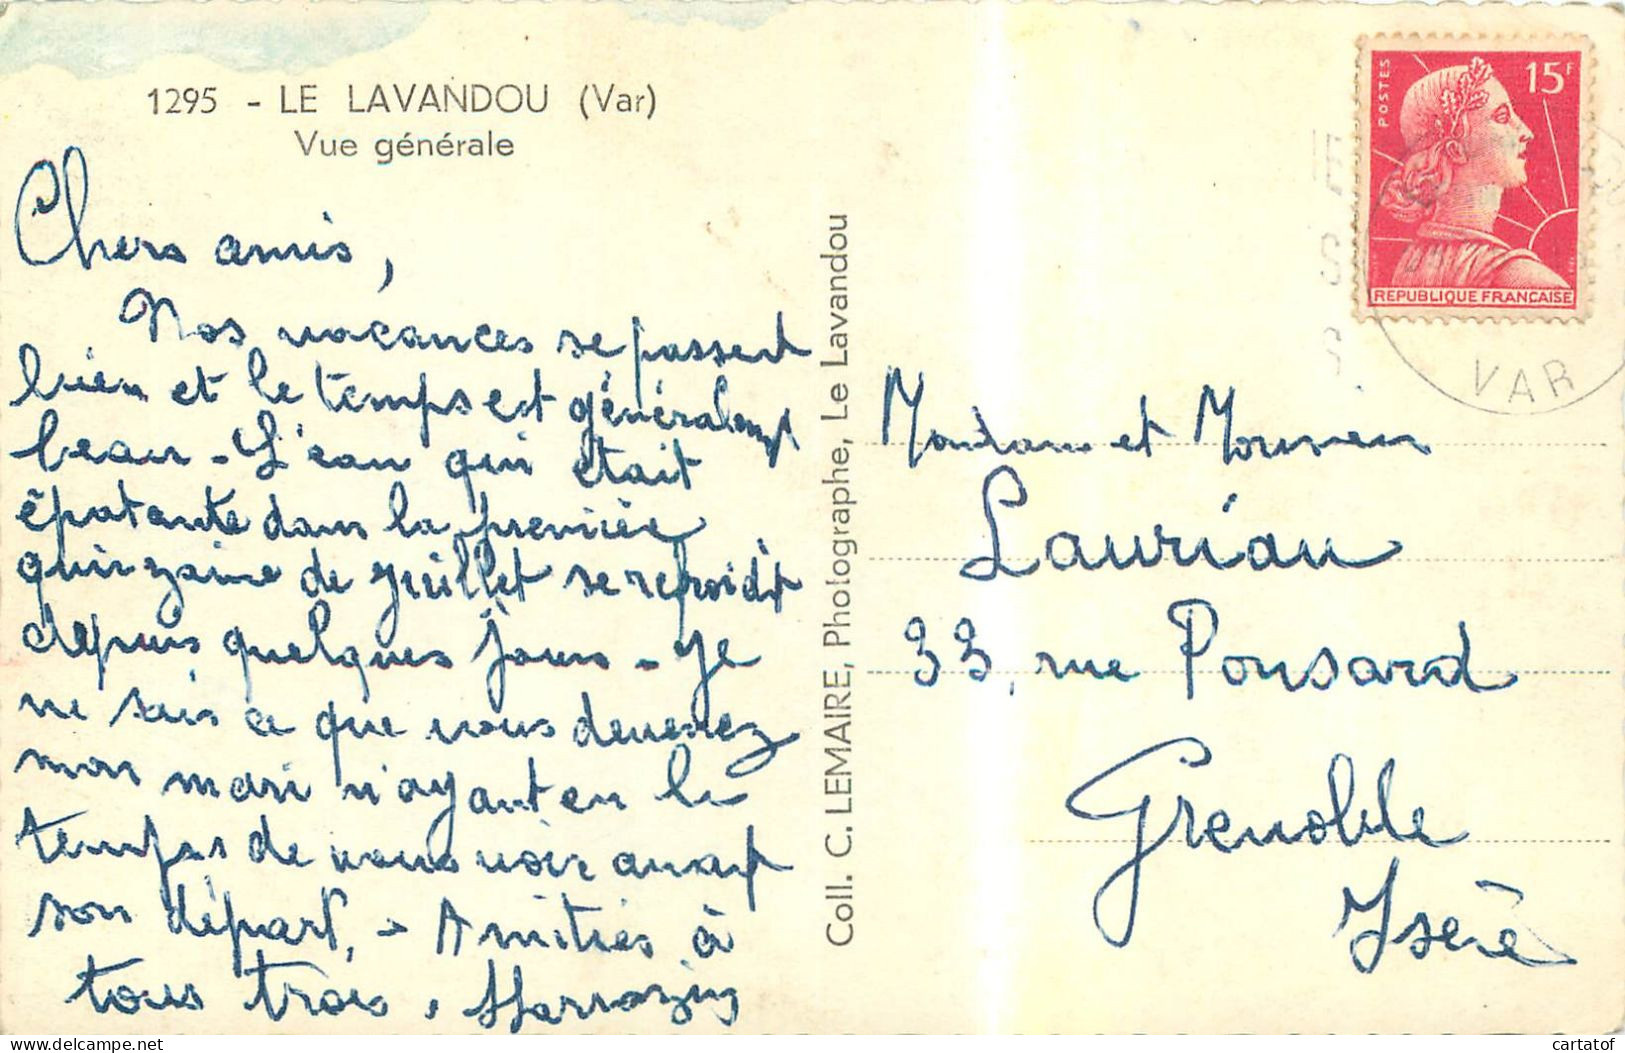 1295 - LE LAVANDOU (Var)
Vue générale
Chers amis,
Nos vacances se passent
bien et le temps est généralemt
beau - L'eau qui était
épatante dans la première
quinzaine de juillet se refroidit
depuis quelques jours - Je
ne sais ce que vous devenez
mon mari n'ayant eu le
temps de vous voir avant
son départ. - Amitiés à
tous trois,
Coll. C. LEMAIRE, Photographe, Le Lavandou
POSTES
15F
REPUBLIQUE FRANÇAISE
VAR
Madame et Monsieur
Laurian
33, rue Ponsard
Grenoble
Isère
cartatof